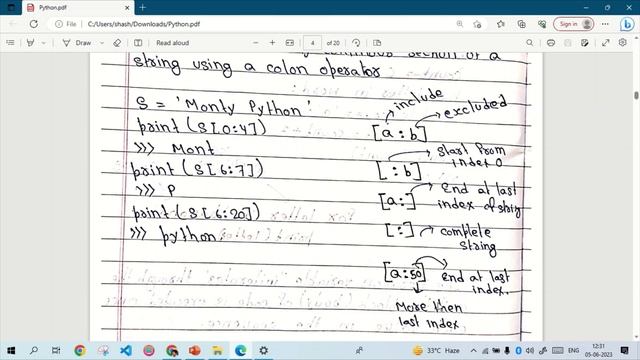 Python.pdf
File
C:/Users/shash/Downloads/Python.pdf
Sign in
Draw
Read aloud
4
of 20
string using a colon operator
S = 'Monty Python'
print (S[0:4])
>>> Mont
print (S[6:7])
>>> P
print (S[6:20])
>>> python.
include
excluded
[a:b]
[:b]
start from
index 0
[a:]
End at last
index of string
[:]
complete
string
[a:50]
End at last
index.
More then
last index
33°C Haze
ENG
12:31
05-06-2023